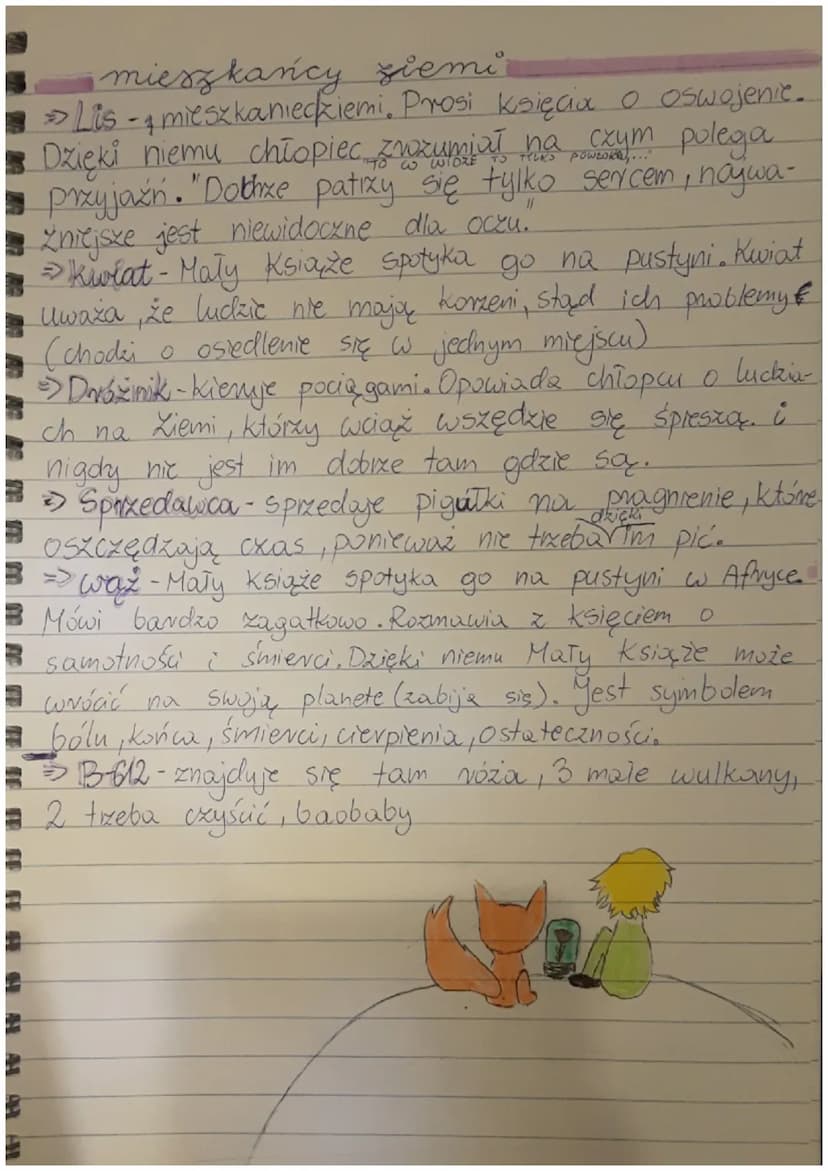 mieszkańcy ziemi
=> Lis - 1 mieszkaniec ziemi. Prosi księcia o oswojenie.
Dzięki niemu chłopiec zrozumiał na czym polega
"TO CO WIDZĘ TO TYLKO POWŁOKA,..."
przyjaźń. "Dobrze patrzy się tylko sercem, najwa-
żniejsze jest niewidoczne dla oczu."
=> Kwiat - Mały Książe spotyka go na pustyni. Kwiat
uważa, że ludzie nie mają korzeni, stąd ich problemy
(chodzi o osiedlenie się w jednym miejscu)
=> Dróżnik - kieruje pociągami. Opowiada chłopcu o ludzia-
ch na Ziemi, którzy wciąż wszędzie się śpieszą. i
nigdy nie jest im dobrze tam gdzie są.
=> Sprzedawca - sprzedaje pigułki na pragnienie, które
oszczędzają czas, ponieważ nie trzeba dzięki im pić.
=> Wąż - Mały Książe spotyka go na pustyni w Afryce.
Mówi bardzo zagatkowo. Rozmawia z księciem o
samotności i śmierci. Dzięki niemu Mały Książe może
wrócić na swoją planete (zabija się). Jest symbolem
bólu, końca, śmierci, cierpienia, ostateczności.
=> B-612 - znajduje się tam róża, 3 małe wulkany,
2 trzeba czyścić, baobaby